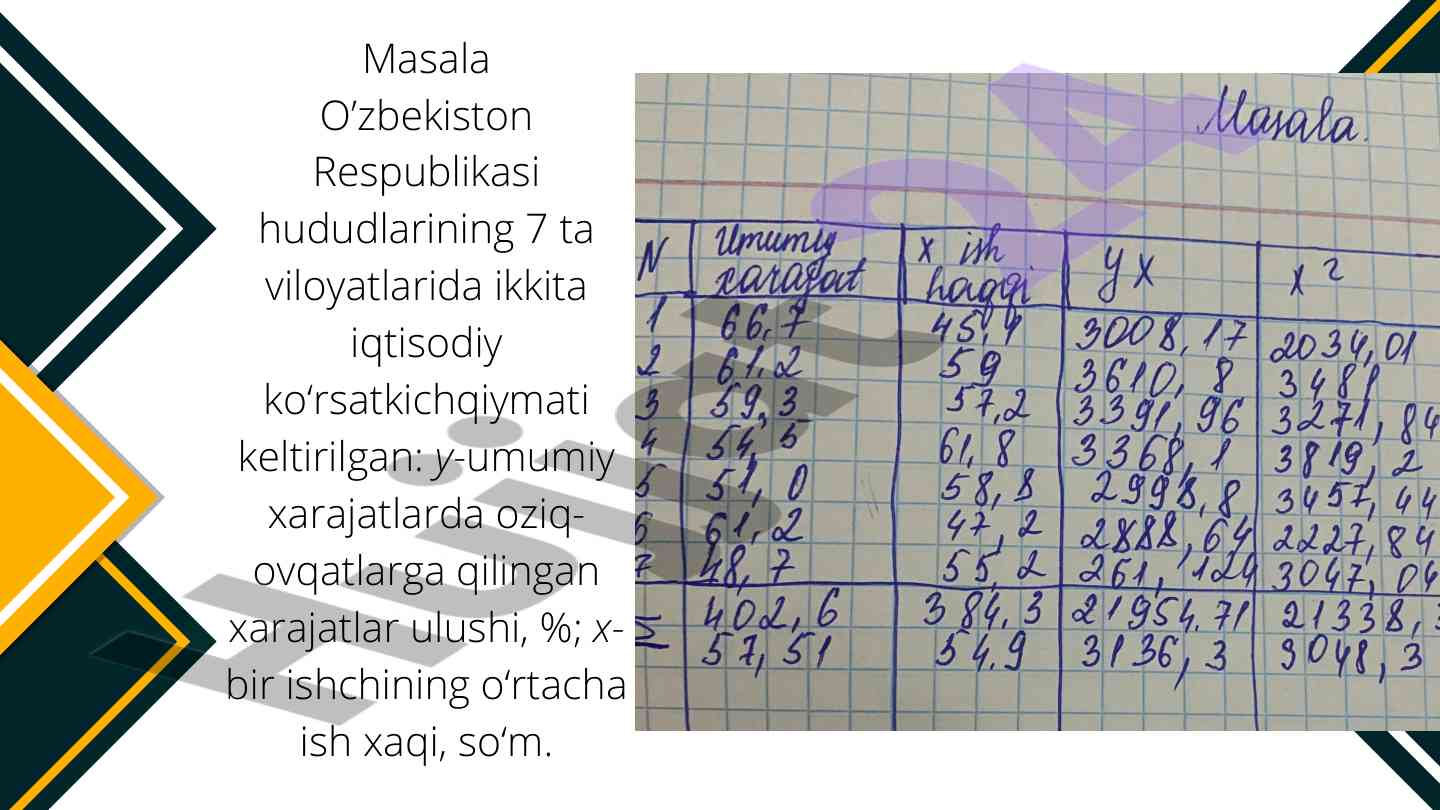 Masala
O’zbekiston
Respublikasi
hududlarining 7 ta
viloyatlarida ikkita
iqtisodiy
ko‘rsatkichqiymati
keltirilgan: y-umumiy
xarajatlarda oziq-
ovqatlarga qilingan
xarajatlar ulushi, %; x-
bir ishchining o‘rtacha
ish xaqi, so‘m.
Masala.
N Umumiy xarajat x ish haqqi yx x²
1 66,7 45,4 3008,17 2034,01
2 61,2 59 3610,8 3481
3 59,3 57,2 3391,96 3271,84
4 54,5 61,8 3368,1 3819,2
5 51,0 58,8 2998,8 3457,44
6 61,2 47,2 2888,64 2227,84
7 48,7 55,2 261,124 3047,04
Σ 402,6 384,3 21954.71 21338,
57,51 54.9 3136,3 3048,3
Hujjat 24